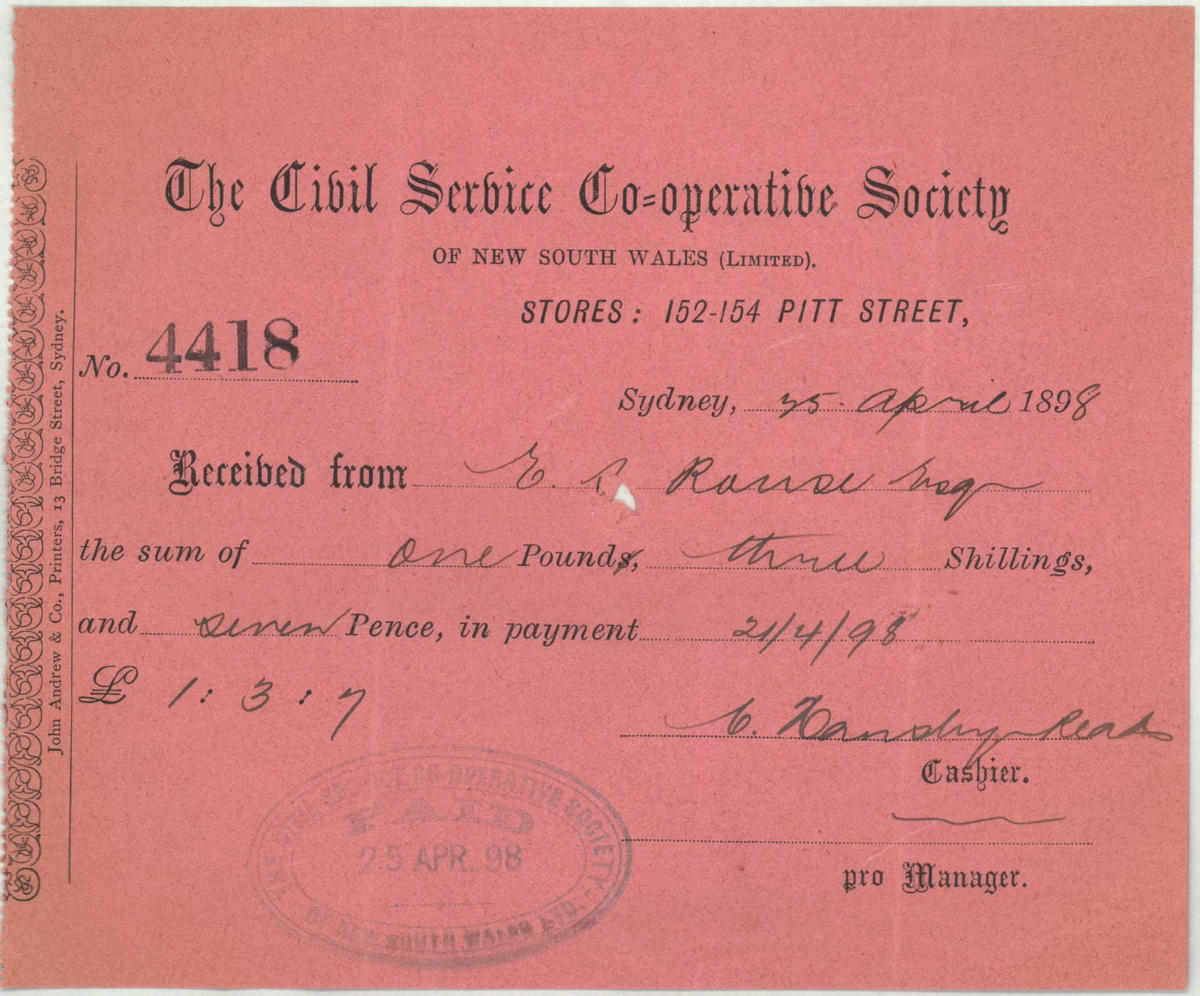 The Civil Service Co-operative Society
OF NEW SOUTH WALES (LIMITED).
STORES: 152-154 PITT STREET,
No. 4418
Sydney, 25 April 1898
Received from E. Rouse Esq
the sum of one Pounds, three Shillings,
and seven Pence, in payment 21/4/98
£ 1 : 3 : 7
Cashier.
pro Manager.
THE CIVIL SERVICE CO-OPERATIVE SOCIETY
PAID
25 APR. 98
OF NEW SOUTH WALES LTD.
John Andrew & Co., Printers, 13 Bridge Street, Sydney.